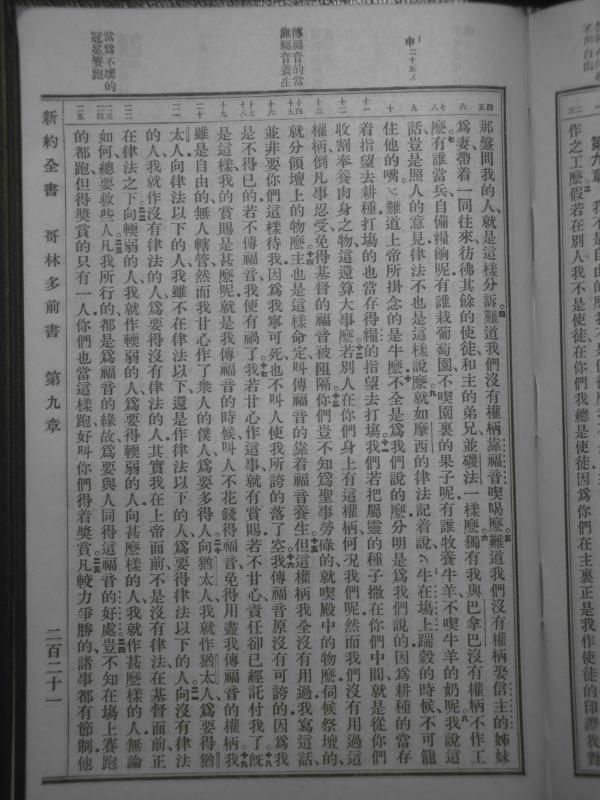 第九章
作之工麽假若在別人我不是使徒在你們我總是使徒因爲你們在主裏正是我作使徒的印證我對
申二十五乂
傳福音的當
靠福音養生
當爲不壞的
冠冕賽跑
那盤問我的人就是這樣分訴難道我們沒有權柄靠福音喫喝麽難道我們沒有權柄娶信主的姊妹
爲妻帶着一同往來彷彿其餘的使徒和主的弟兄並磯法一樣麽獨有我與巴拿巴沒有權柄不作工
麽有誰當兵自備糧餉呢有誰栽葡萄園不喫園裏的果子呢有誰牧養牛羊不喫牛羊的奶呢我說這
話豈是照人的意見律法不也是這樣說麽就如摩西的律法記着說牛在場上踹穀的時候不可籠
住他的嘴難道上帝所掛念的是牛麽不全是爲我們說的麽分明是爲我們說的因爲耕種的當存
着指望去耕種打場的也當存得糧的指望去打場我們若把屬靈的種子撒在你們中間就是從你們
收割奉養肉身之物這還算大事麽若別人在你們身上有這權柄何況我們呢然而我們沒有用過這
權柄倒凡事忍受免得基督的福音被阻隔你們豈不知爲聖事勞碌的就喫殿中的物麽伺候祭壇的
就分領壇上的物麽主也是這樣命定叫傳福音的靠着福音養生但這權柄我全沒有用過我寫這話
並非要你們這樣待我因爲我寧可死也不叫人使我所誇的落了空我傳福音原沒有可誇的因爲我
是不得已的若不傳福音我便有禍了我若甘心作這事就有賞賜若不甘心責任卻已經託付我了旣
是這樣我的賞賜是甚麽呢就是我傳福音的時候叫人不花錢得福音免得用盡我傳福音的權柄我
雖是自由的無人轄管然而我甘心作了衆人的僕人爲要多得人向猶太人我就作猶太人爲要得猶
太人向律法以下的人我雖不在律法以下還是作律法以下的人爲要得律法以下的人向沒有律法
的人我就作沒有律法的人爲要得沒有律法的人其實我在上帝面前不是沒有律法在基督面前正
在律法之下向輭弱的人我就作輭弱的人爲要得輭弱的人向甚麽樣的人我就作甚麽樣的人無論
如何總要救些人凡我所行的都是爲福音的緣故爲要與人同得這福音的好處豈不知在場上賽跑
的都跑但得獎賞的只有一人你們也當這樣跑好叫你們得着獎賞凡較力爭勝的諸事都有節制他
新約全書 哥林多前書 第九章 二百二十一